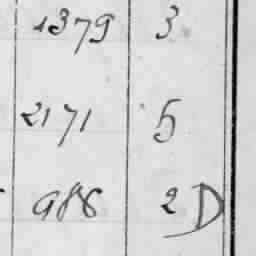 1379 3
2171 5
988 2 D